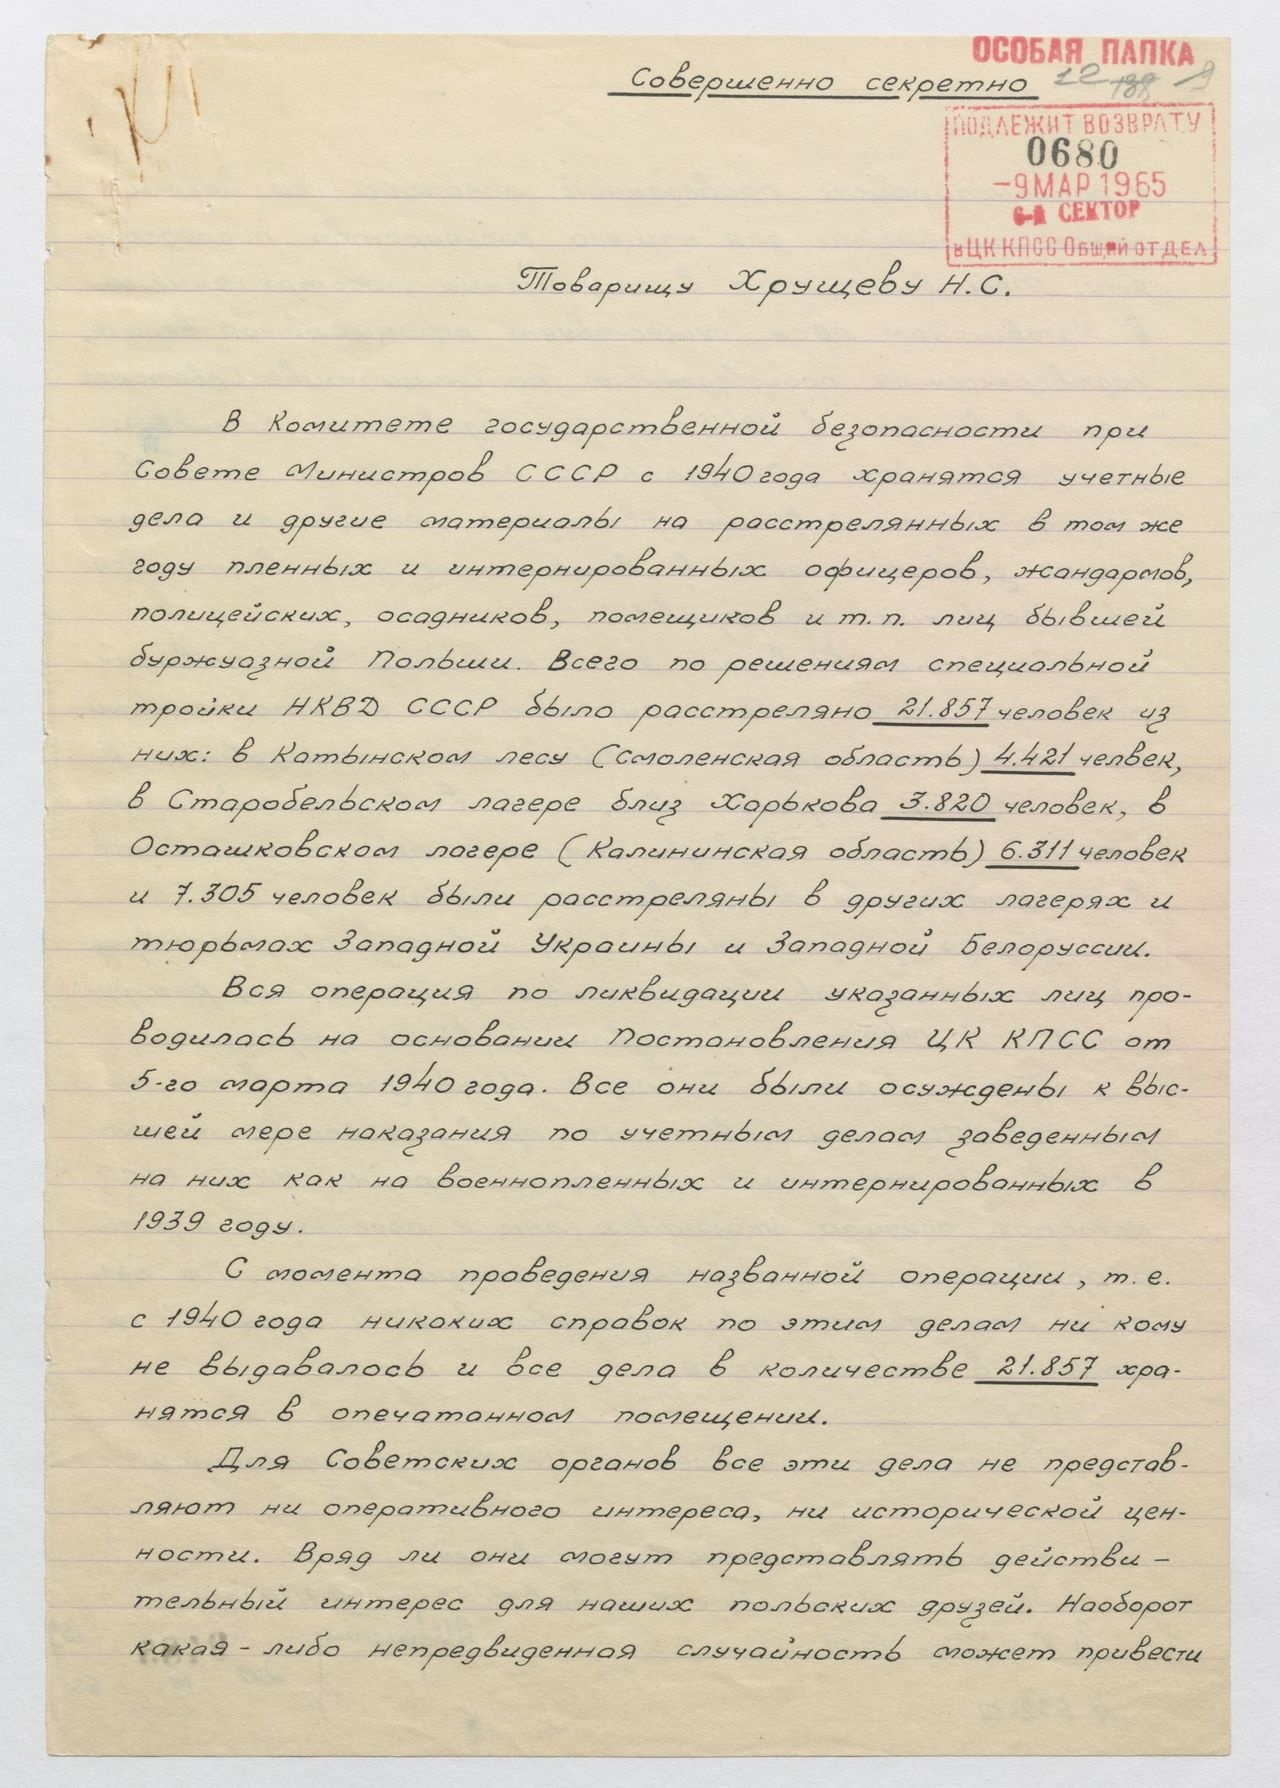 ОСОБАЯ ПАПКА
Совершенно секретно
12 9
ПОДЛЕЖИТ ВОЗВРАТУ
0680
-9 МАР 1965
6-й СЕКТОР
в ЦК КПСС Общий отдел
Товарищу Хрущеву Н.С.
В Комитете государственной безопасности при
Совете Министров СССР с 1940 года хранятся учетные
дела и другие материалы на расстрелянных в том же
году пленных и интернированных офицеров, жандармов,
полицейских, осадников, помещиков и т.п. лиц бывшей
буржуазной Польши. Всего по решениям специальной
тройки НКВД СССР было расстреляно 21.857 человек из
них: в Катынском лесу (Смоленская область) 4.421 челвек,
в Старобельском лагере близ Харькова 3.820 человек, в
Осташковском лагере (Калининская область) 6.311 человек
и 7.305 человек были расстреляны в других лагерях и
тюрьмах Западной Украины и Западной Белоруссии.
Вся операция по ликвидации указанных лиц про-
водилась на основании Постановления ЦК КПСС от
5-го марта 1940 года. Все они были осуждены к выс-
шей мере наказания по учетным делам заведенным
на них как на военнопленных и интернированных в
1939 году.
С момента проведения названной операции, т.е.
с 1940 года никаких справок по этим делам ни кому
не выдавалось и все дела в количестве 21.857 хра-
нятся в опечатанном помещении.
Для Советских органов все эти дела не представ-
ляют ни оперативного интереса, ни исторической цен-
ности. Вряд ли они могут представлять действи-
тельный интерес для наших польских друзей. Наоборот
какая-либо непредвиденная случайность может привести